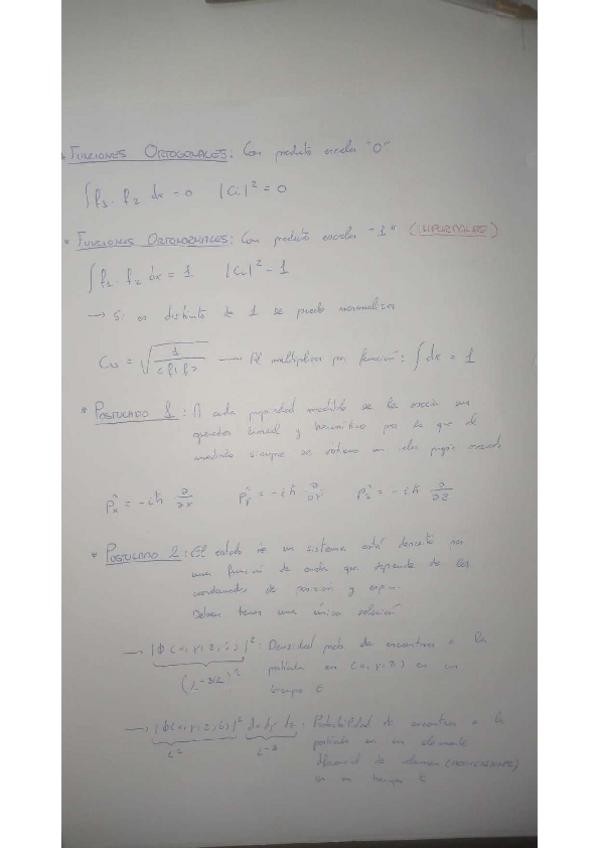 • FUNCIONES ORTOGONALES: Con producto escalar "0"
∫f₁ · f₂ dx = 0 |Ci|² = 0
• FUNCIONES ORTONORMALES: Con producto escalar "1" (IMPORTANTE)
∫f₁ · f₂ dx = 1 |Ci|² = 1
→ Si es distinto de 1 se puede normalizar
C_N = √(1/<f|f>) → Al multiplicar por función: ∫dx = 1
• POSTULADO 1: A cada propiedad medible se le asocia un
operador lineal y hermítico por lo que al
medirlo siempre se obtiene un valor propio
p̂x = -iħ ∂/∂x p̂y = -iħ ∂/∂y p̂z = -iħ ∂/∂z
• POSTULADO 2: El estado de un sistema está descrito por
una función de onda que depende de las
coordenadas de posición y espín.
Deben tener una única solución
→ |Φ(x,y,z,t)|²: Densidad prob. de encontrar a la
(L^-3/2)² partícula en (x,y,z) en un
tiempo t
→ |Φ(x,y,z,t)|² dx dy dz: Probabilidad de encontrar a la
partícula en un elemento
diferencial de volumen (ADIMENSIONAL)
en un tiempo t